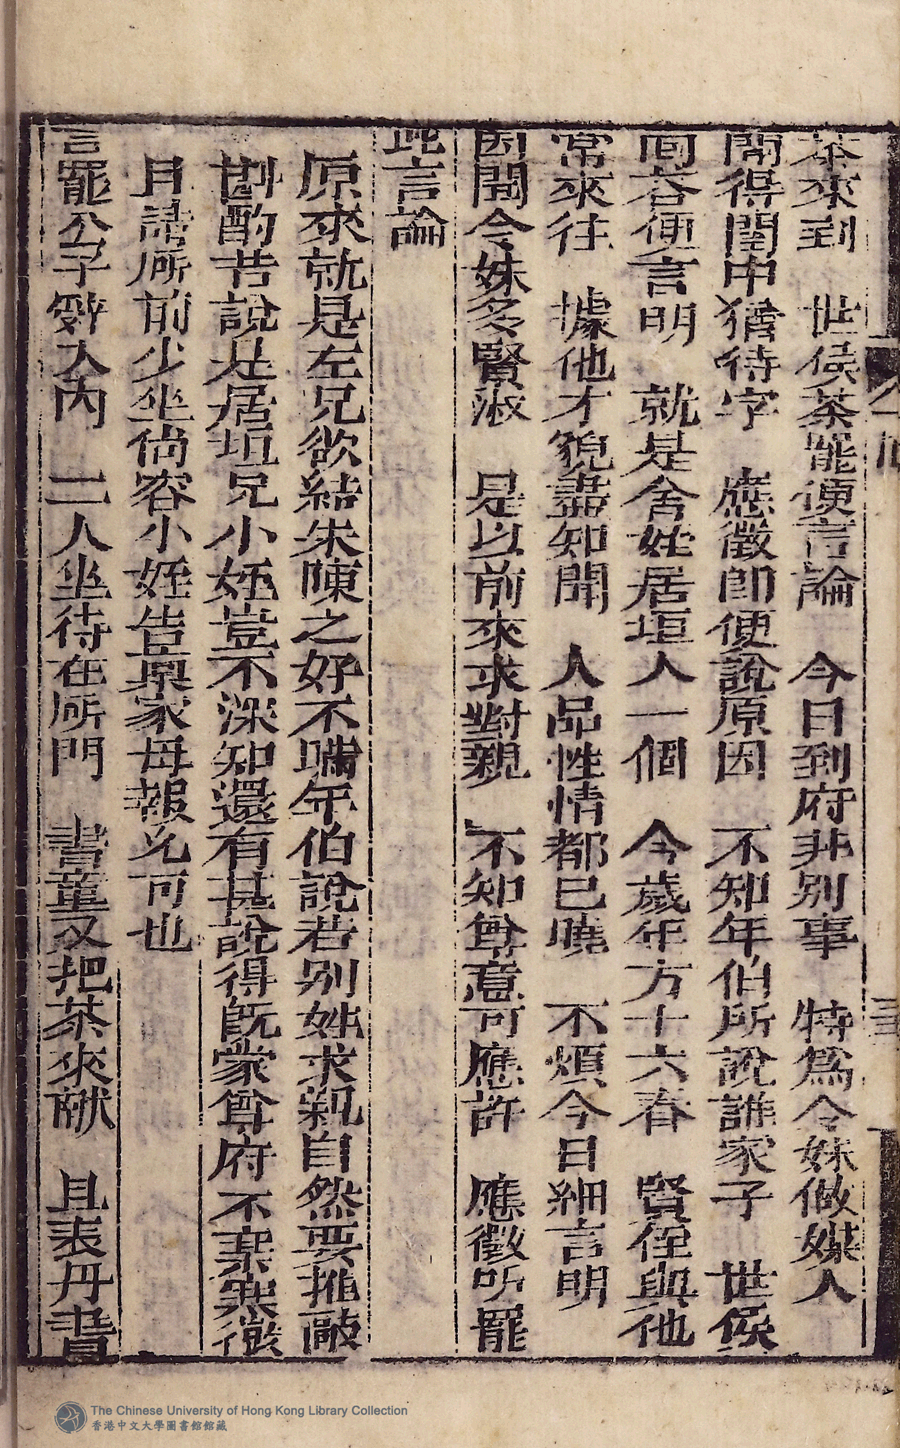 茶來到 世侯茶罷便言論 今日到府非別事 特爲令妹做媒人
聞得閨中猶待字 應徵即便說原因 不知年伯所說誰家子 世侯
回答便言明 就是舍姪居垣人一個 今歲年方十六春 賢侄與他
常來往 據他才貌盡知聞 人品性情都已曉 不煩今日細言明
因聞令妹多賢淑 是以前來求對親 不知尊意可應許 應徵听罷
此言論
原來就是左兄欲結朱陳之好不瑞年伯說若別姓求親自然要推敲
斟酌若說是居垣兄小姪豈不深知還有甚說得既蒙尊府不棄寒微
且請所前少坐尚容小姪告禀家母報允可也
言罷公子辭入內 二人坐待在所門 書童又把茶來献 且表丹書
The Chinese University of Hong Kong Library Collection
香港中文大學圖書館館藏